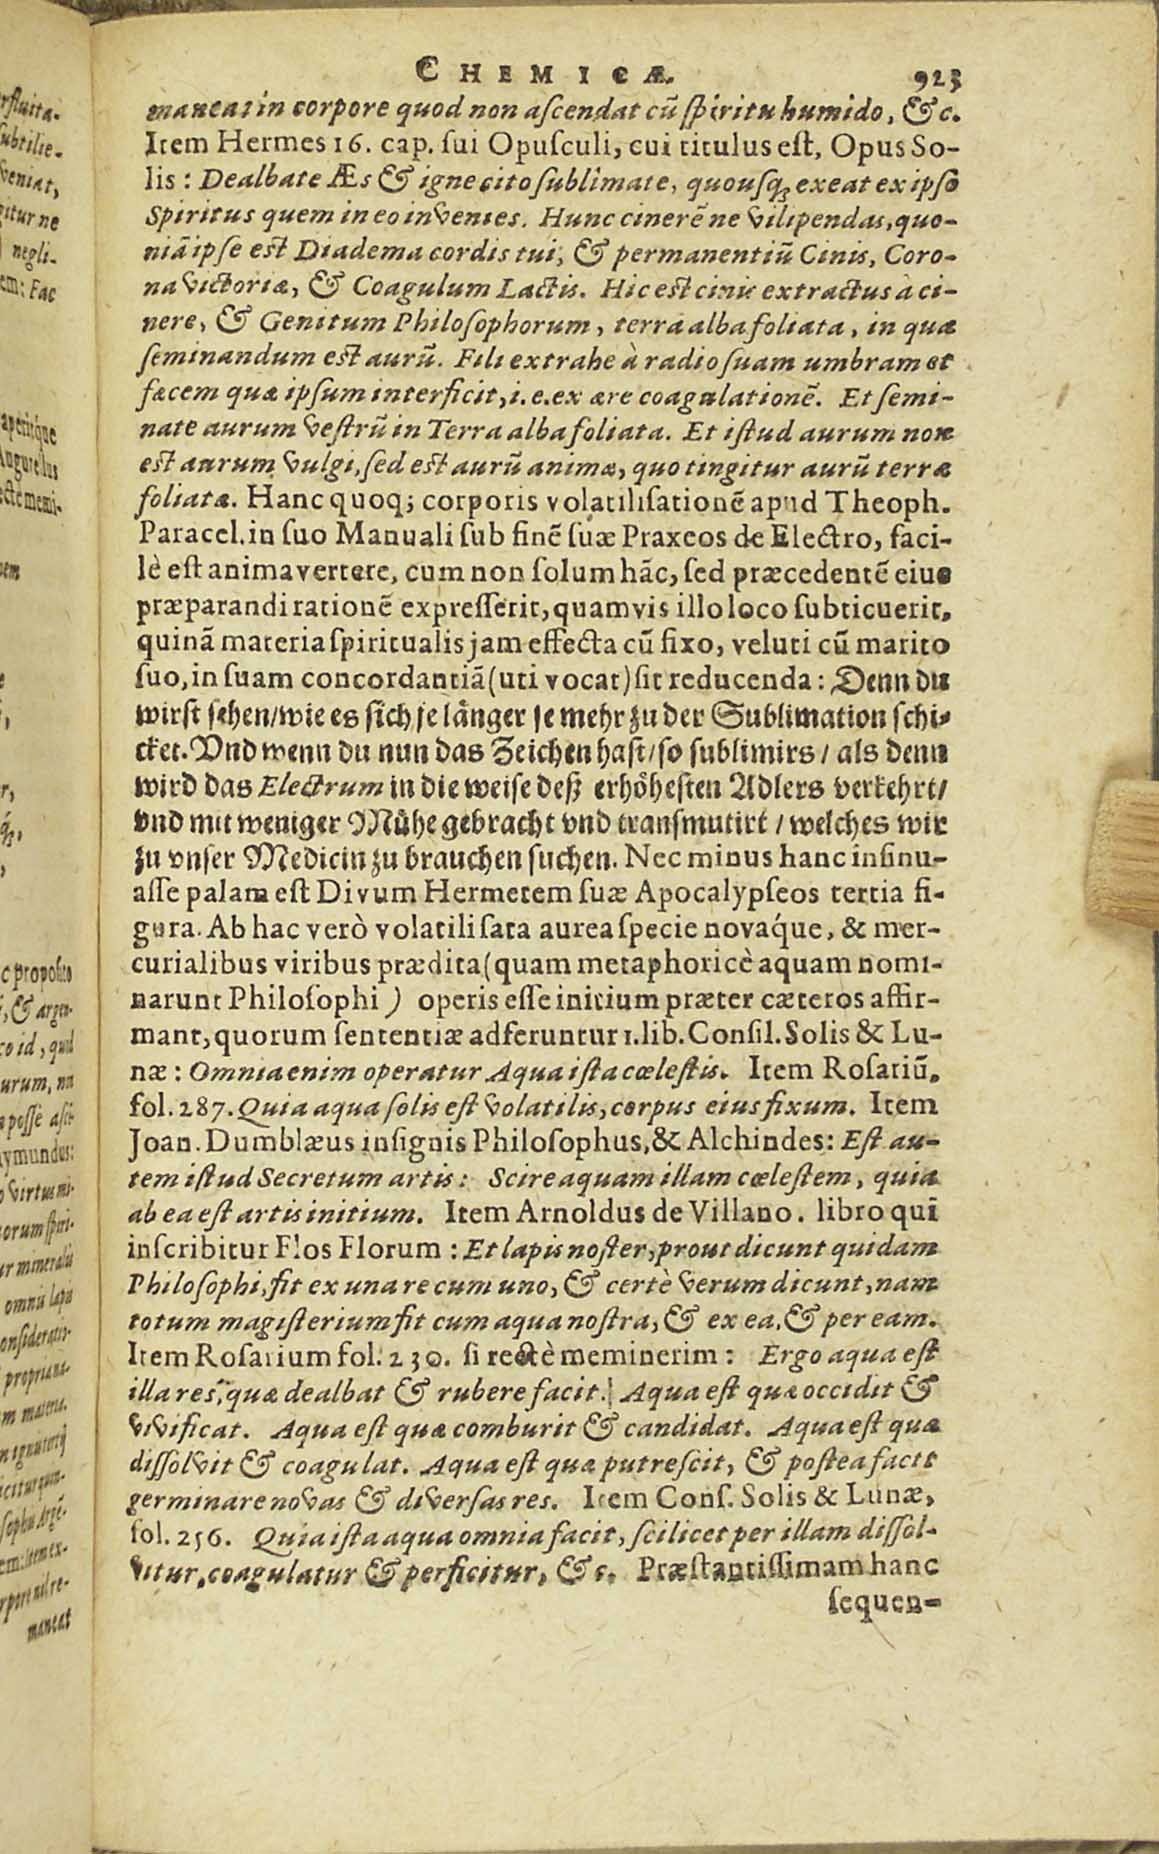 CHEMICÆ. 923
maneat in corpore quod non ascendat cũ spiritu humido, &c.
Item Hermes 16. cap. sui Opusculi, cui titulus est, Opus So-
lis: Dealbate Æs & igne cito sublimate, quousq; exeat ex ipso
Spiritus quem in eo invenies. Hunc cinerẽ ne vilipendas, quo-
niã ipse est Diadema cordis tui, & permanentiũ Cinis, Coro-
na victoriæ, & Coagulum Lactis. Hic est cinis extractus à ci-
nere, & Genitum Philosophorum, terra alba foliata, in qua
seminandum est aurũ. Fili extrahe à radio suam umbram et
fæcem quæ ipsum interficit, i. e. ex ære coagulationẽ. Et semi-
nate aurum vestrũ in Terra alba foliata. Et istud aurum non
est aurum vulgi, sed est aurũ animæ, quo tingitur aurũ terræ
foliatæ. Hanc quoq; corporis volatilisationẽ apud Theoph.
Paracel. in suo Manuali sub finẽ suæ Praxeos de Electro, faci-
lè est animavertere, cum non solum hãc, sed præcedentẽ eius
præparandi rationẽ expresserit, quamvis illo loco subticuerit,
quinã materia spiritualis jam effecta cũ fixo, veluti cũ marito
suo, in suam concordantiã (uti vocat) sit reducenda: Denn du
wirst sehen/wie es sich je länger je mehr zu der Sublimation schi-
cket. Vnd wenn du nun das Zeichen hast/so sublimirs/als denn
wird das Electrum in die weise deß erhöhesten Adlers verkehrt/
vnd mit weniger Mühe gebracht vnd transmutirt/welches wir
zu vnser Medicin zu brauchen suchen. Nec minus hanc insinu-
asse palam est Divum Hermetem suæ Apocalypseos tertia fi-
gura. Ab hac verò volatilisata aurea specie novaq́ue, & mer-
curialibus viribus prædita (quam metaphoricè aquam nomi-
narunt Philosophi) operis esse initium præter cæteros affir-
mant, quorum sententiæ adferuntur 1. lib. Consil. Solis & Lu-
næ: Omnia enim operatur Aqua ista cœlestis. Item Rosariũ.
fol. 287. Quia aqua solis est volatilis, corpus eius fixum. Item
Joan. Dumblæus insignis Philosophus, & Alchindes: Est au-
tem istud Secretum artis: Scire aquam illam cœlestem, quia
ab ea est artis initium. Item Arnoldus de Villano. libro qui
inscribitur Flos Florum: Et lapis noster, prout dicunt quidam
Philosophi, fit ex una re cum uno, & certè verum dicunt, nam
totum magisterium fit cum aqua nostra, & ex ea, & per eam.
Item Rosarium fol. 230. si rectè meminerim: Ergo aqua est
illa res, quæ dealbat & rubere facit. Aqua est quæ occidit &
vivificat. Aqua est quæ comburit & candidat. Aqua est quæ
dissolvit & coagulat. Aqua est quæ putrescit, & postea facit
germinare novas & diversas res. Item Cons. Solis & Lunæ,
fol. 256. Quia ista aqua omnia facit, scilicet per illam dissol-
vitur, coagulatur & perficitur, &c. Præstantissimam hanc
sequen-